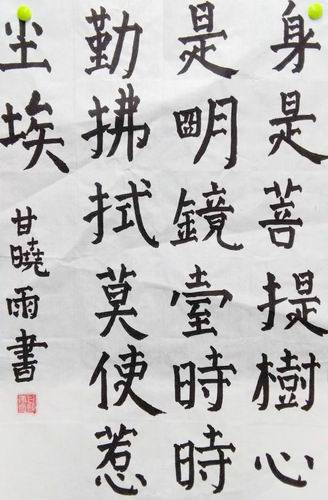 身是菩提樹心
是明鏡臺時時
勤拂拭莫使惹
尘埃
甘曉雨書